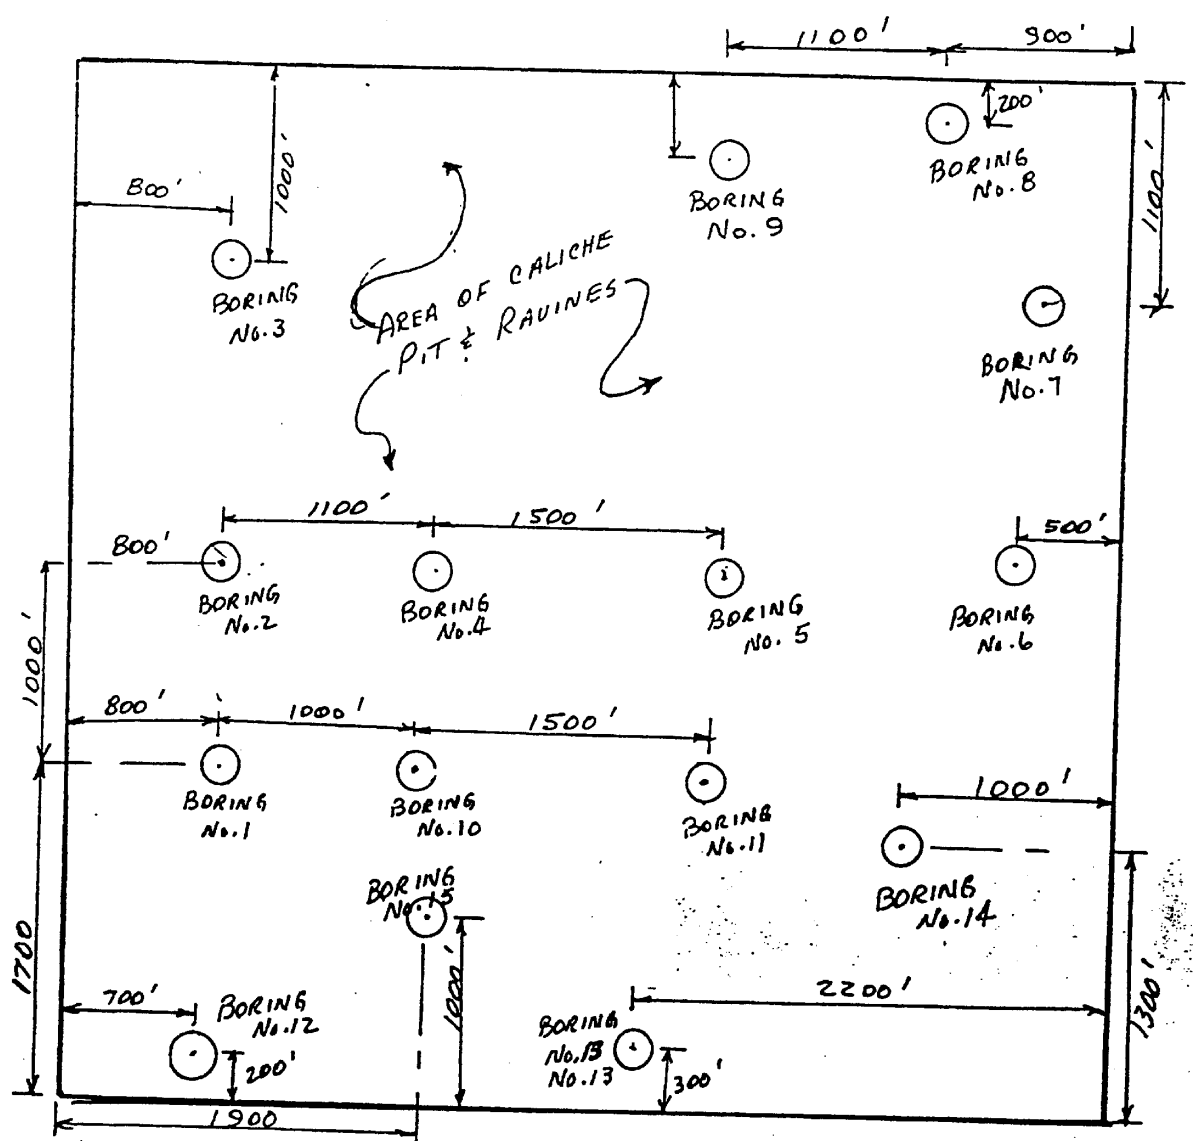 1100'
900'
200'
BORING
No.8
1000'
800'
BORING
No.9
1100'
BORING
No.3
AREA OF CALICHE
PIT & RAVINES
BORING
No.7
1100'
1500'
500'
800'
BORING
No.2
BORING
No.4
BORING
No. 5
BORING
No.6
1000'
800'
1000'
1500'
BORING
No.1
BORING
No.10
BORING
No.11
1000'
BORING
No.15
BORING
No.14
1700
700'
BORING
No.12
200'
1000'
2200'
BORING
No.13
No.13
300'
1300'
1900